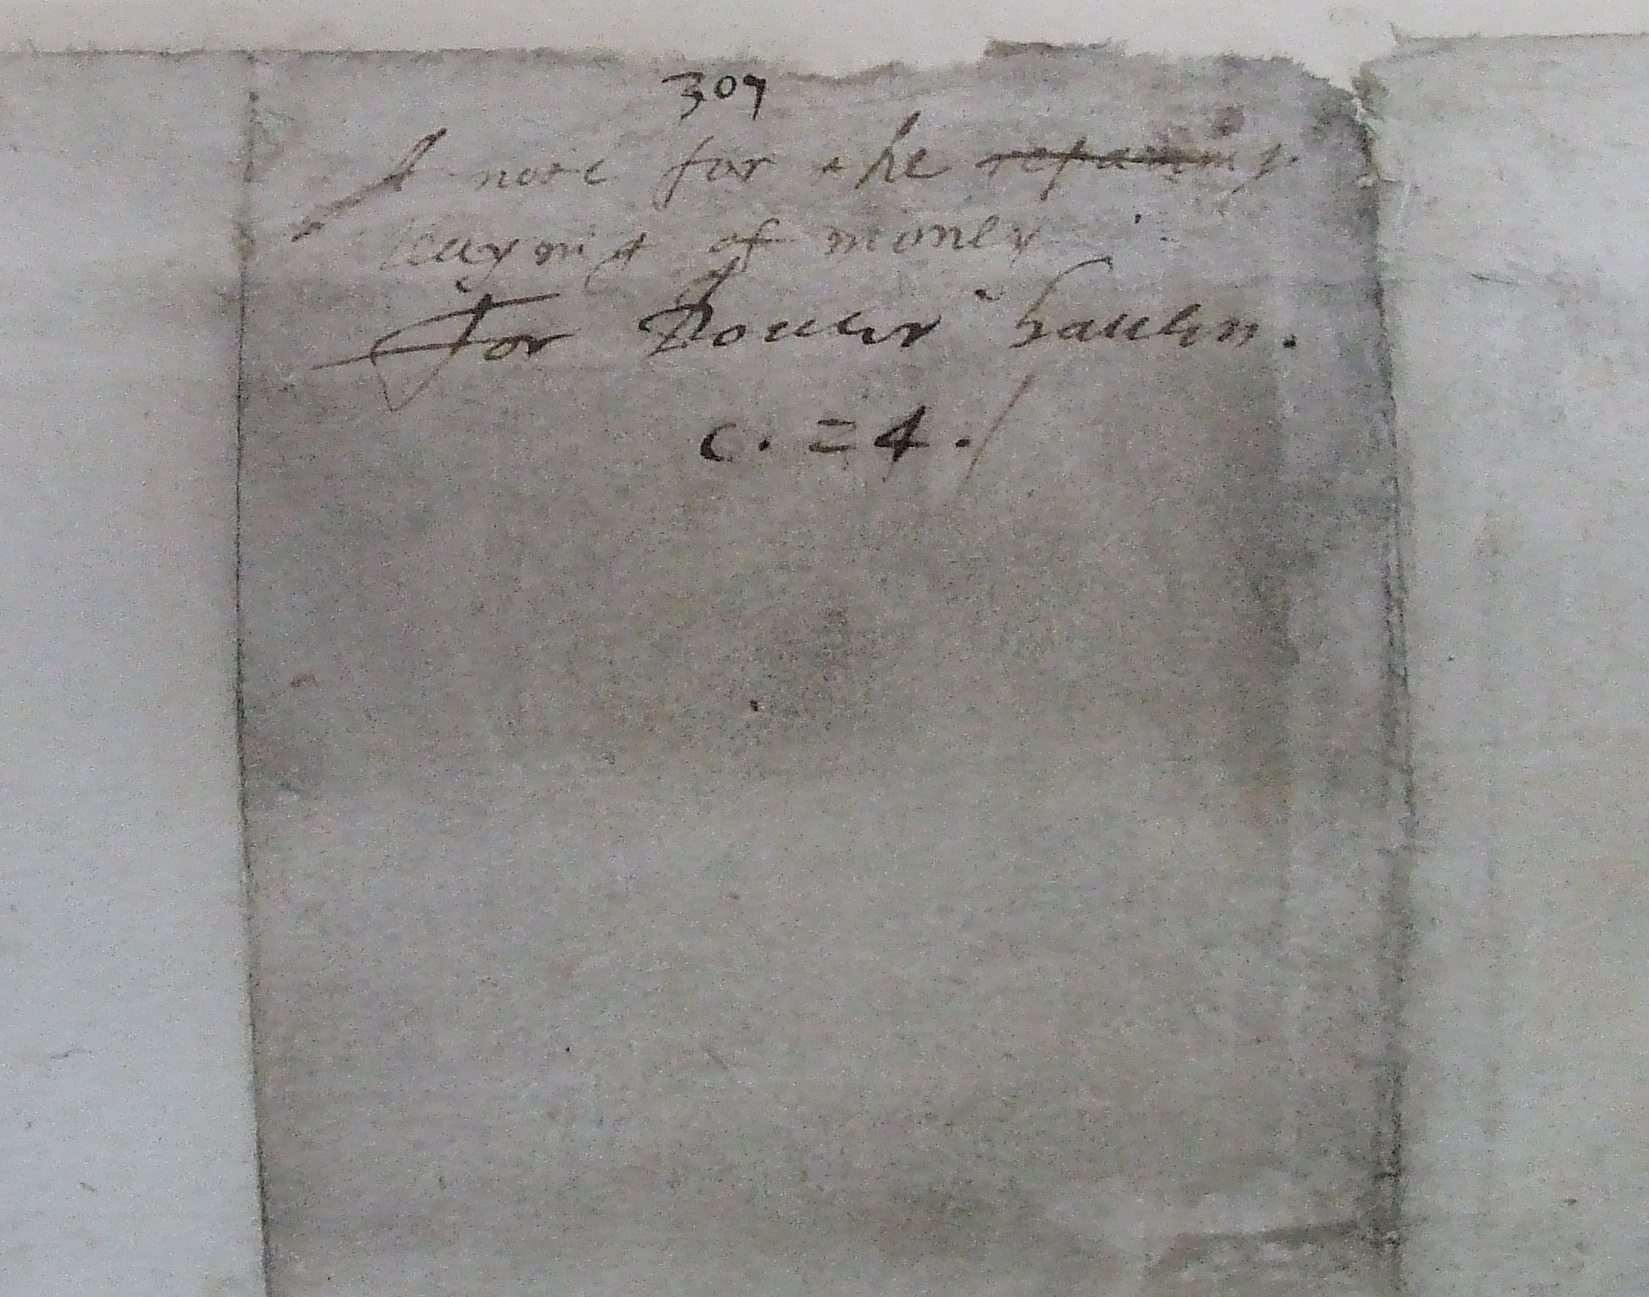 307
A note for the repairing
leuying of money
For Douer hauen.
c. =4./